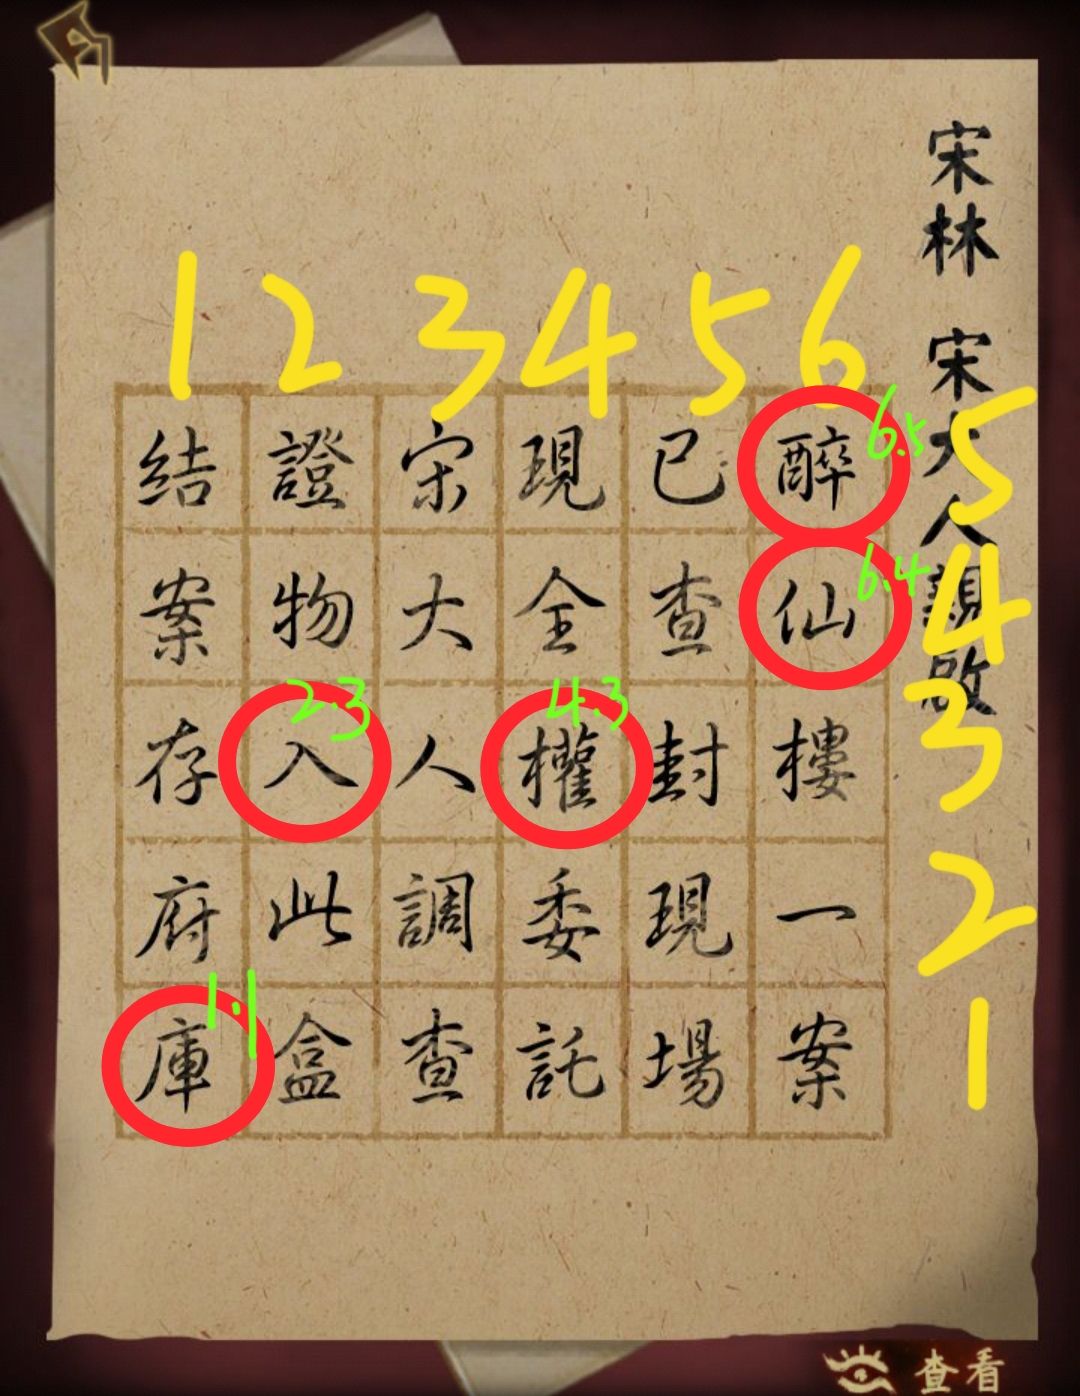 宋林 宋大人親啟
1 2 3 4 5 6
5
4
3
2
1
醉仙樓一案
已查封現場
現全權委託
宋大人調查
證物入此盒
結案存府庫
6.5
6.4
2.3
4.3
1.1
查看